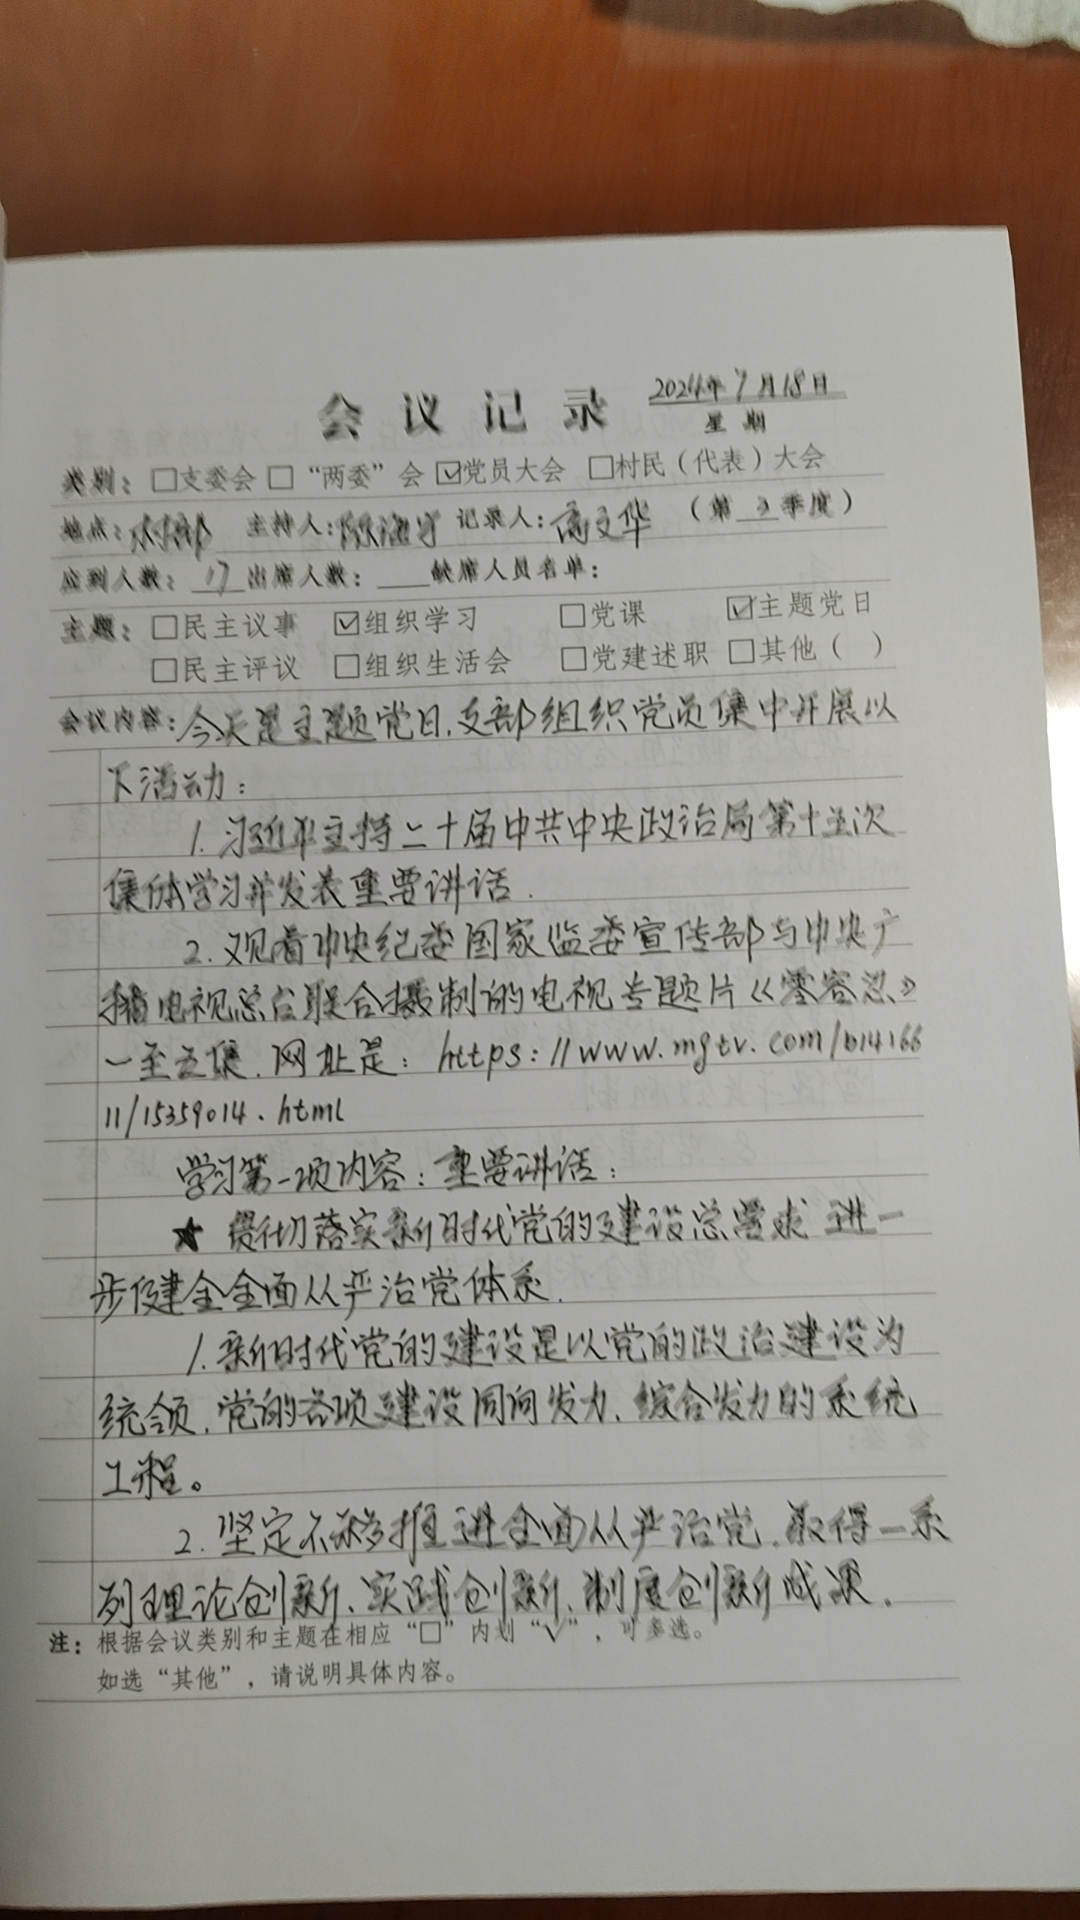 会议记录 2024年7月18日
星期
类别：□支委会 □“两委”会 ☑党员大会 □村民（代表）大会
地点：村部 主持人：陈海 记录人：高文华 （第3季度）
应到人数：17 出席人数： 缺席人员名单：
主题：□民主议事 ☑组织学习 □党课 ☑主题党日
□民主评议 □组织生活会 □党建述职 □其他（ ）
会议内容：今天是主题党日,支部组织党员集中开展以
下活动：
1.习近平主持二十届中共中央政治局第十五次
集体学习并发表重要讲话.
2.观看中央纪委国家监委宣传部与中央广
播电视总台联合摄制的电视专题片《零容忍》
一至五集.网址是：https://www.mgtv.com/b/14166
11/15359014.html
学习第一项内容：重要讲话：
★ 贯彻落实新时代党的建设总要求 进一
步健全全面从严治党体系.
1.新时代党的建设是以党的政治建设为
统领,党的各项建设同向发力,综合发力的系统
工程。
2.坚定不移推进全面从严治党,取得一系
列理论创新、实践创新、制度创新成果.
注：根据会议类别和主题在相应“□”内划“√”，可多选。
如选“其他”，请说明具体内容。